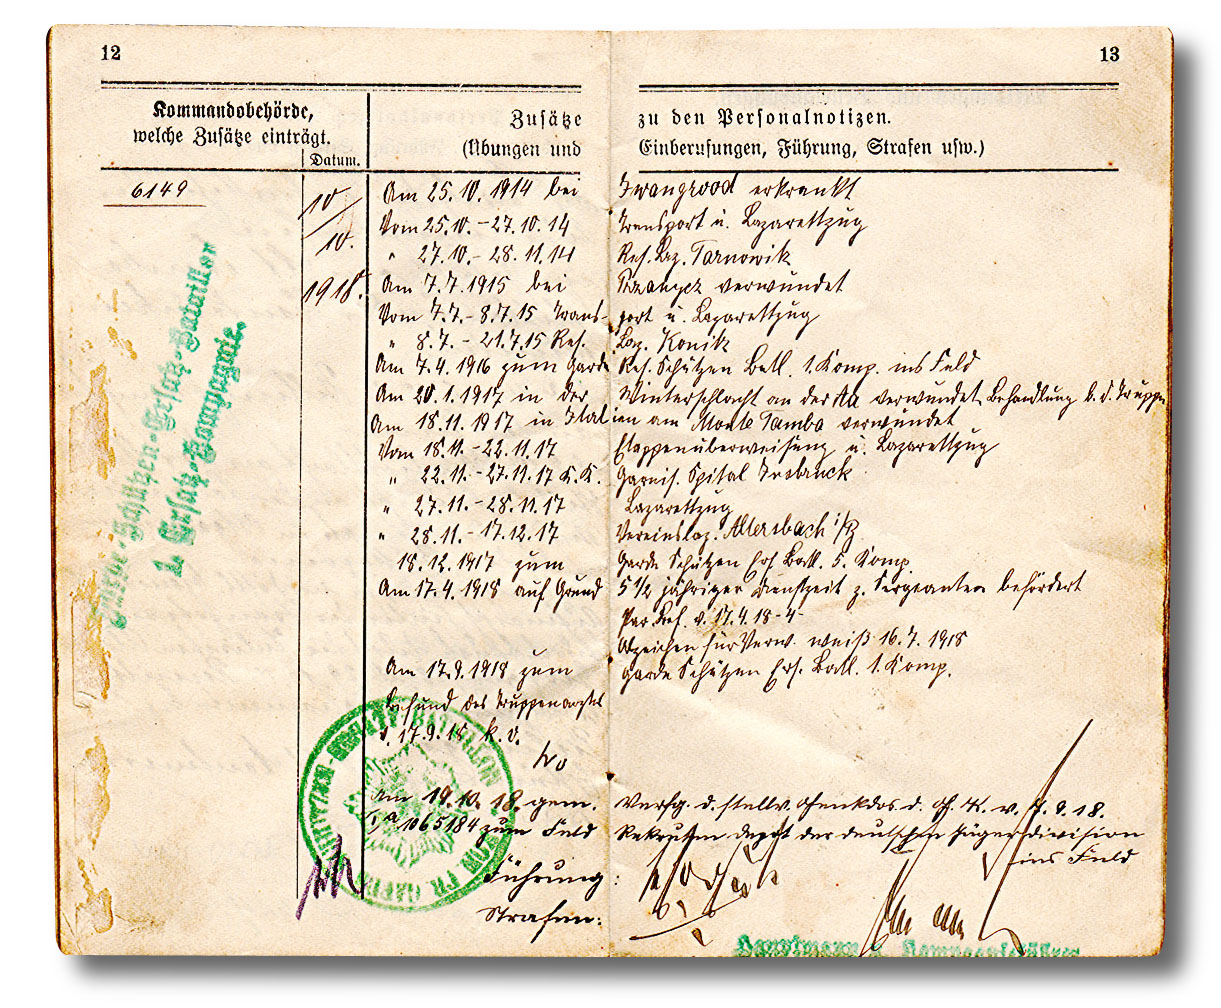 12
13
Kommandobehörde,
welche Zusätze einträgt.
Datum.
Zusätze zu den Personalnotizen.
(Übungen und Einberufungen, Führung, Strafen usw.)
6149
10.
10.
1918.
Am 25.10.1914 bei Iwangrood erkrankt
Vom 25.10.-27.10.14 Transport u. Lazarettzug
" 27.10.-28.11.14 Res. Laz. Tarnowik
Am 7.7.1915 bei verwundet
Vom 7.7.-8.7.15 Transport u. Lazarettzug
" 8.7.-21.7.15 Res. Laz. Konitz
Am 7.4.1916 zum Garde Res. Schützen Batl. 1. Komp. ins Feld
Am 20.1.1917 in der Winterschlacht an der Aa verwundet. Behandlung b. d. Truppe
Am 18.11.1917 in Italien am Monte Tamba verwundet
Vom 18.11.-22.11.17 Etappenüberweisung u. Lazarettzug
" 22.11.-27.11.17 K.K. Garnis. Spital Insbruck
" 27.11.-28.11.17 Lazarettzug
" 28.11.-17.12.17 Vereinslaz. Altersbach i/B.
18.12.1917 zum Garde Schützen Ers. Batl. 5. Komp.
Am 17.4.1918 auf Grund 5 1/2 jähriger Dienstzeit z. Sergeanten befördert
Par. Bef. v. 17.4.18 -4-
Abzeichen für Verw. weiß 16.7.1918
Am 17.9.1918 zum Garde Schützen Ers. Batl. 1. Komp.
Befund des Truppenarztes
v. 17.9.18 k.v.
Am 19.10.18. gem. Verfg. d. stellv. Genkdos. d. G. K. v. 7.9.18.
1065184 zum Feld Rekruten Depot der deutschen Jäger Division
ins Feld
Führung:
Strafen:
Garde-Schützen-Ersatz-Bataillon
1. Ersatz-Kompagnie.
Hauptmann u. Kompagnieführer